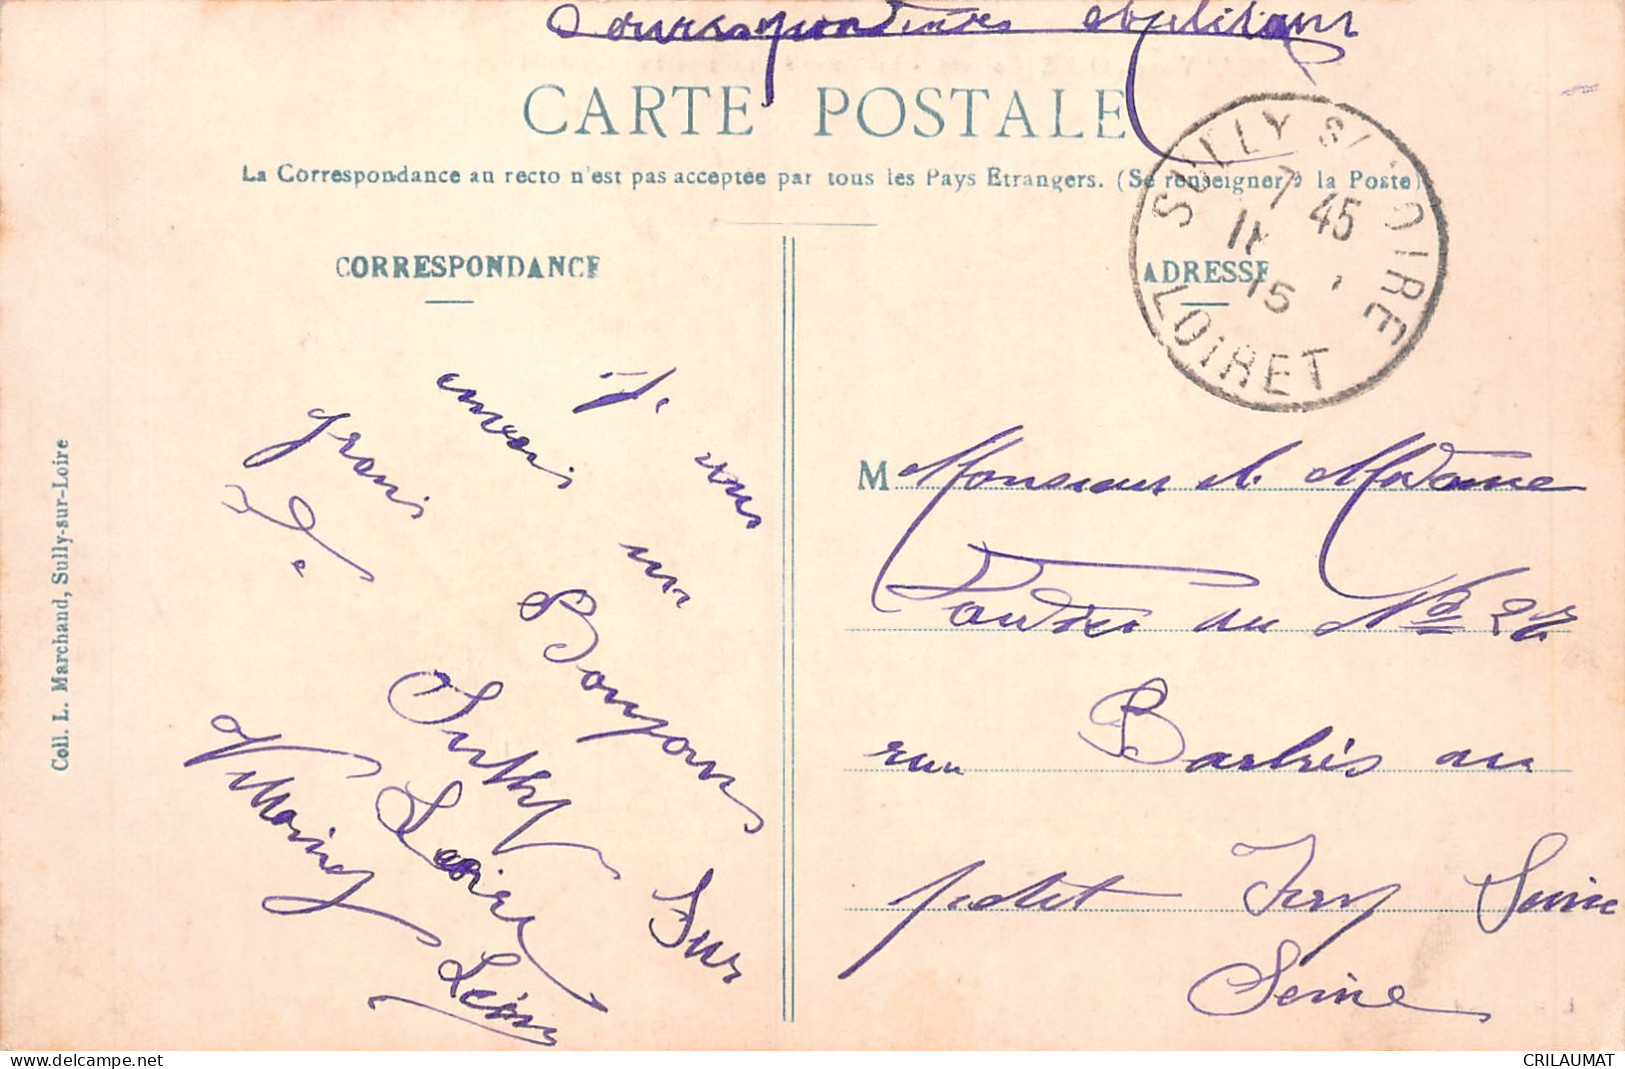 Correspondance Militaire
CARTE POSTALE
La Correspondance au recto n'est pas acceptée par tous les Pays Étrangers. (Se renseigner à la Poste)
SULLY S/ LOIRE
7 45
15
LOIRET
CORRESPONDANCE
ADRESSE
Je vous
envois un
gros Bonjour
De Sully Sur
Loire
Léon
M Monsieur et Madame
au No 27
rue Barbès au
petit Ivry Seine
Seine
Coll. L. Marchand, Sully-sur-Loire
delcampe.net
CRILAUMAT